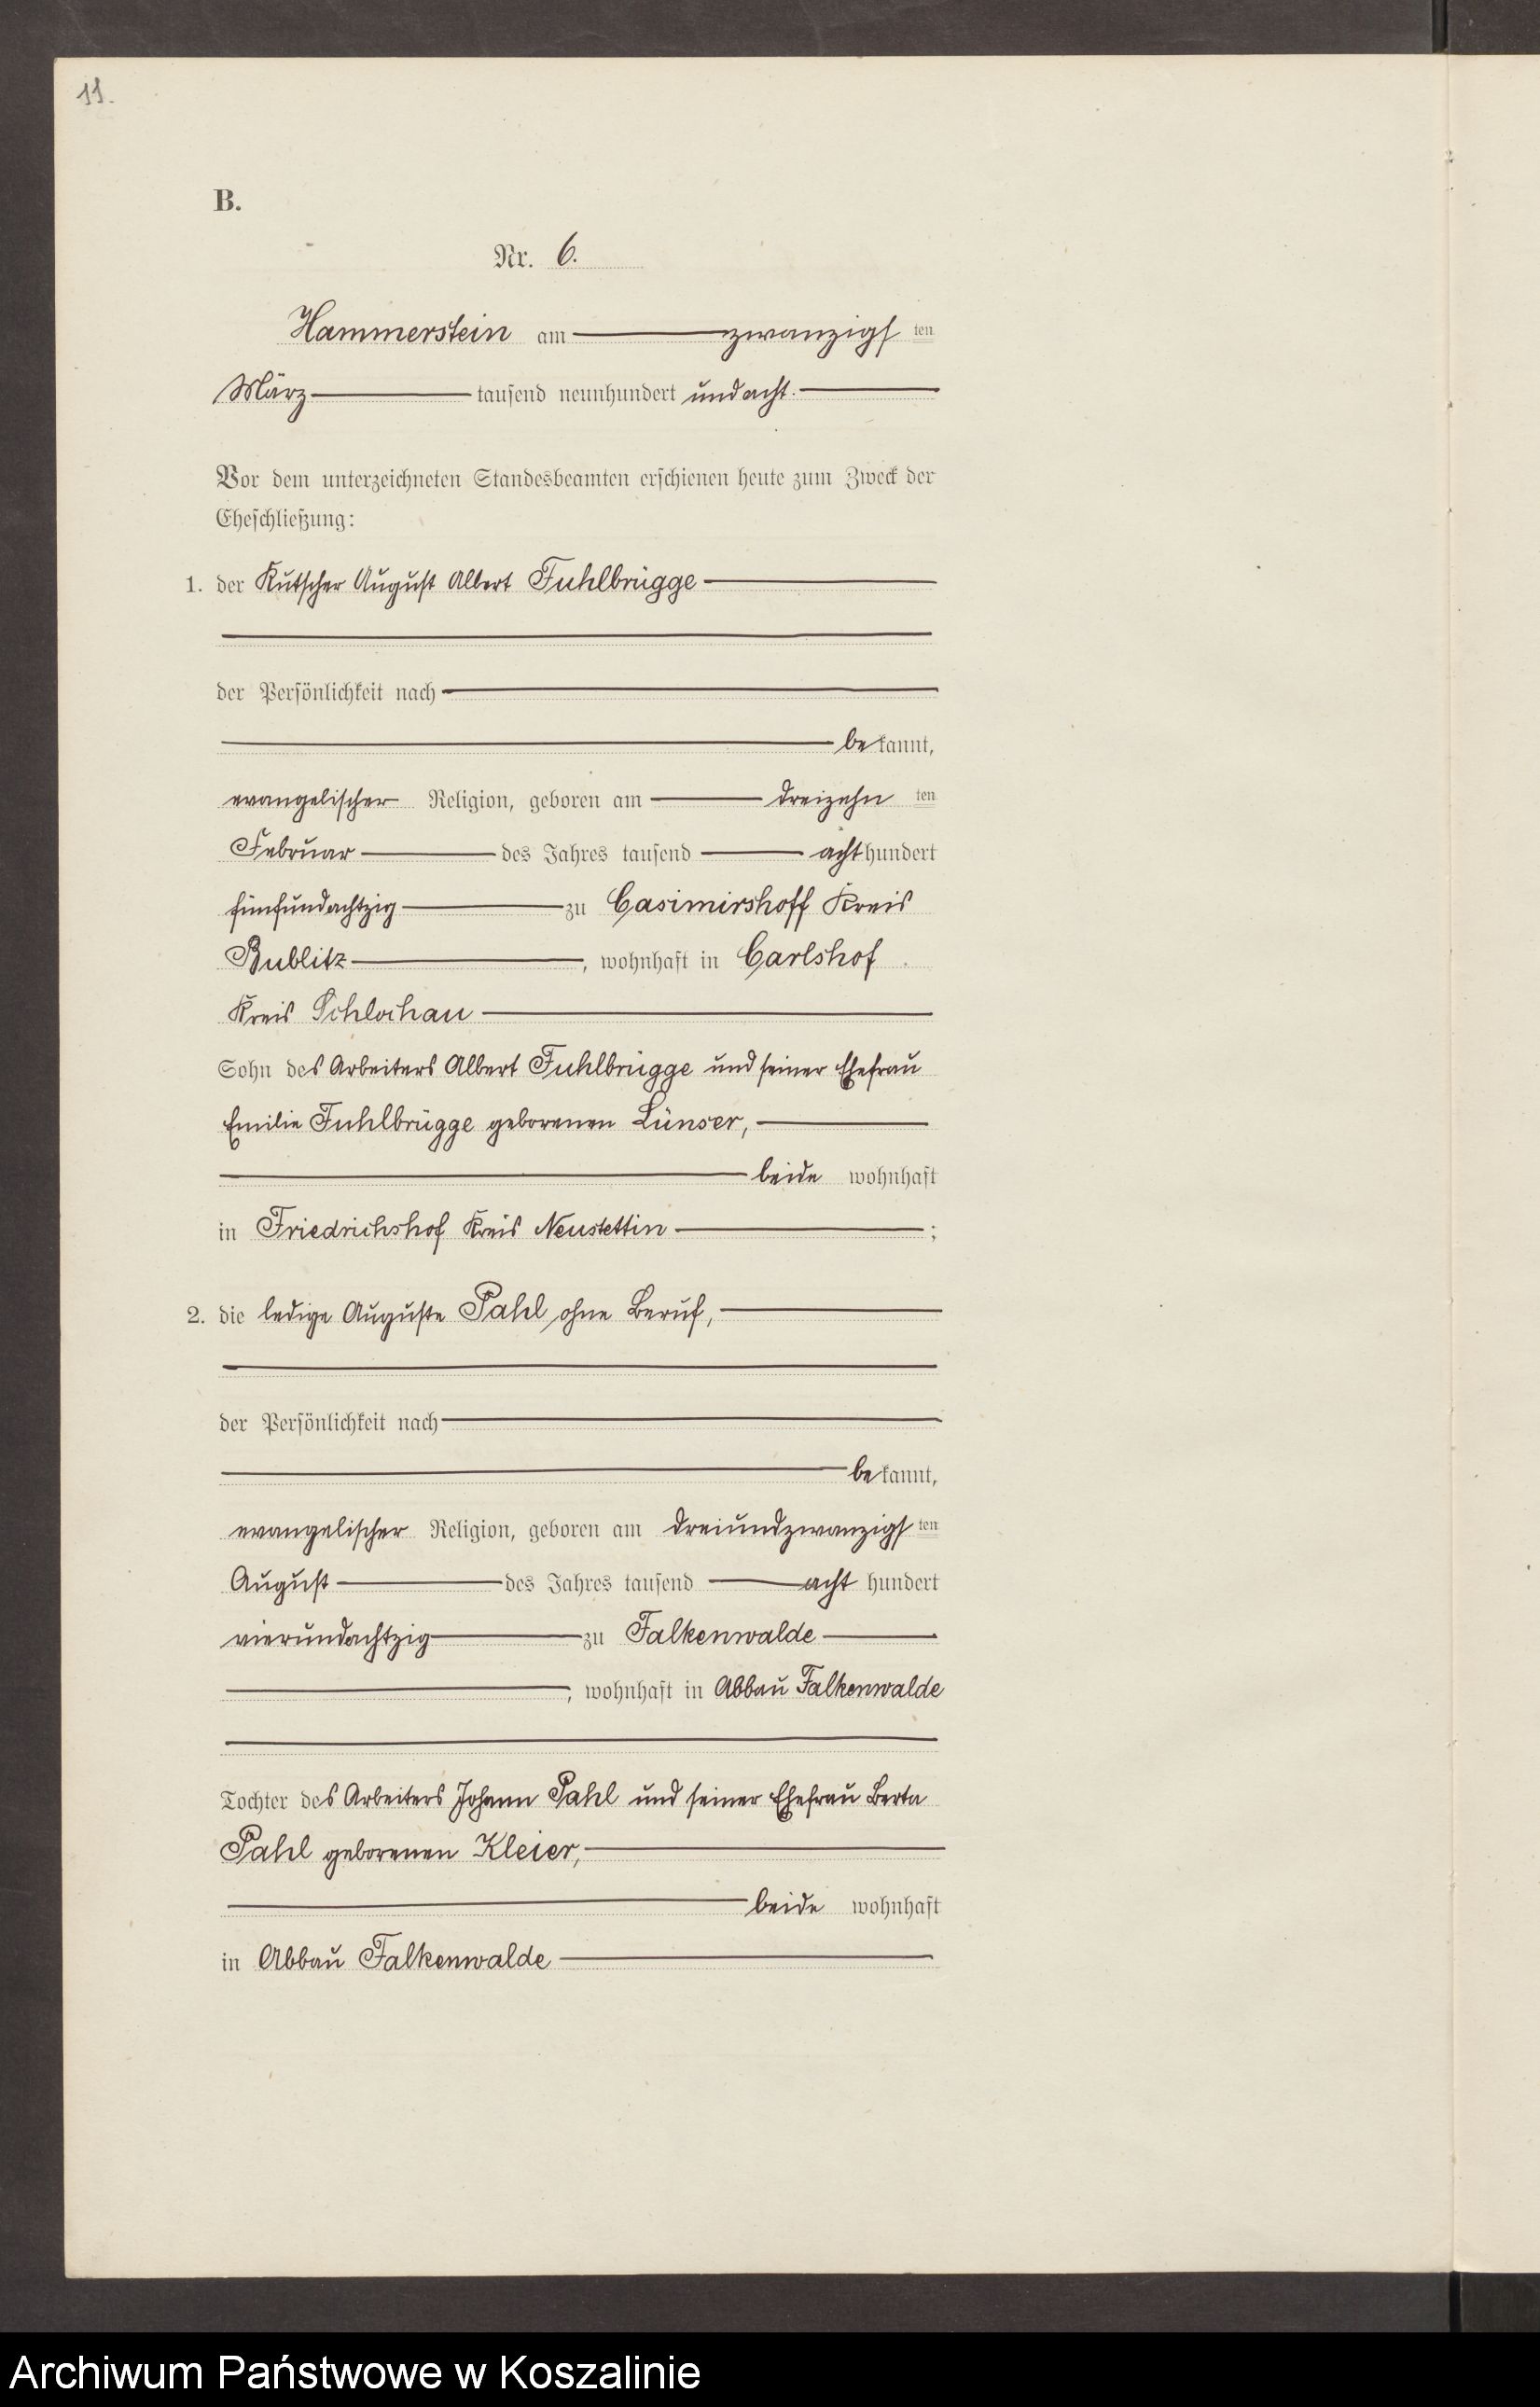 11.
B.
Nr. 6.
Hammerstein am zwanzigsten
März tausend neunhundert und acht.
Vor dem unterzeichneten Standesbeamten erschienen heute zum Zweck der
Eheschließung:
1. der Kutscher August Albert Fuhlbrügge
der Persönlichkeit nach
bekannt,
evangelischer Religion, geboren am dreizehnten
Februar des Jahres tausend achthundert
fünfundachtzig zu Casimirshoff Kreis
Bublitz, wohnhaft in Carlshof
Kreis Schlochau
Sohn des Arbeiters Albert Fuhlbrügge und seiner Ehefrau
Emilie Fuhlbrügge geborenen Lünser,
beide wohnhaft
in Friedrichshof Kreis Neustettin;
2. die ledige Auguste Pahl, ohne Beruf,
der Persönlichkeit nach
bekannt,
evangelischer Religion, geboren am dreiundzwanzigsten
August des Jahres tausend acht hundert
vierundachtzig zu Falkenwalde
, wohnhaft in Abbau Falkenwalde
Tochter des Arbeiters Johann Pahl und seiner Ehefrau Berta
Pahl geborenen Kleier,
beide wohnhaft
in Abbau Falkenwalde
Archiwum Państwowe w Koszalinie